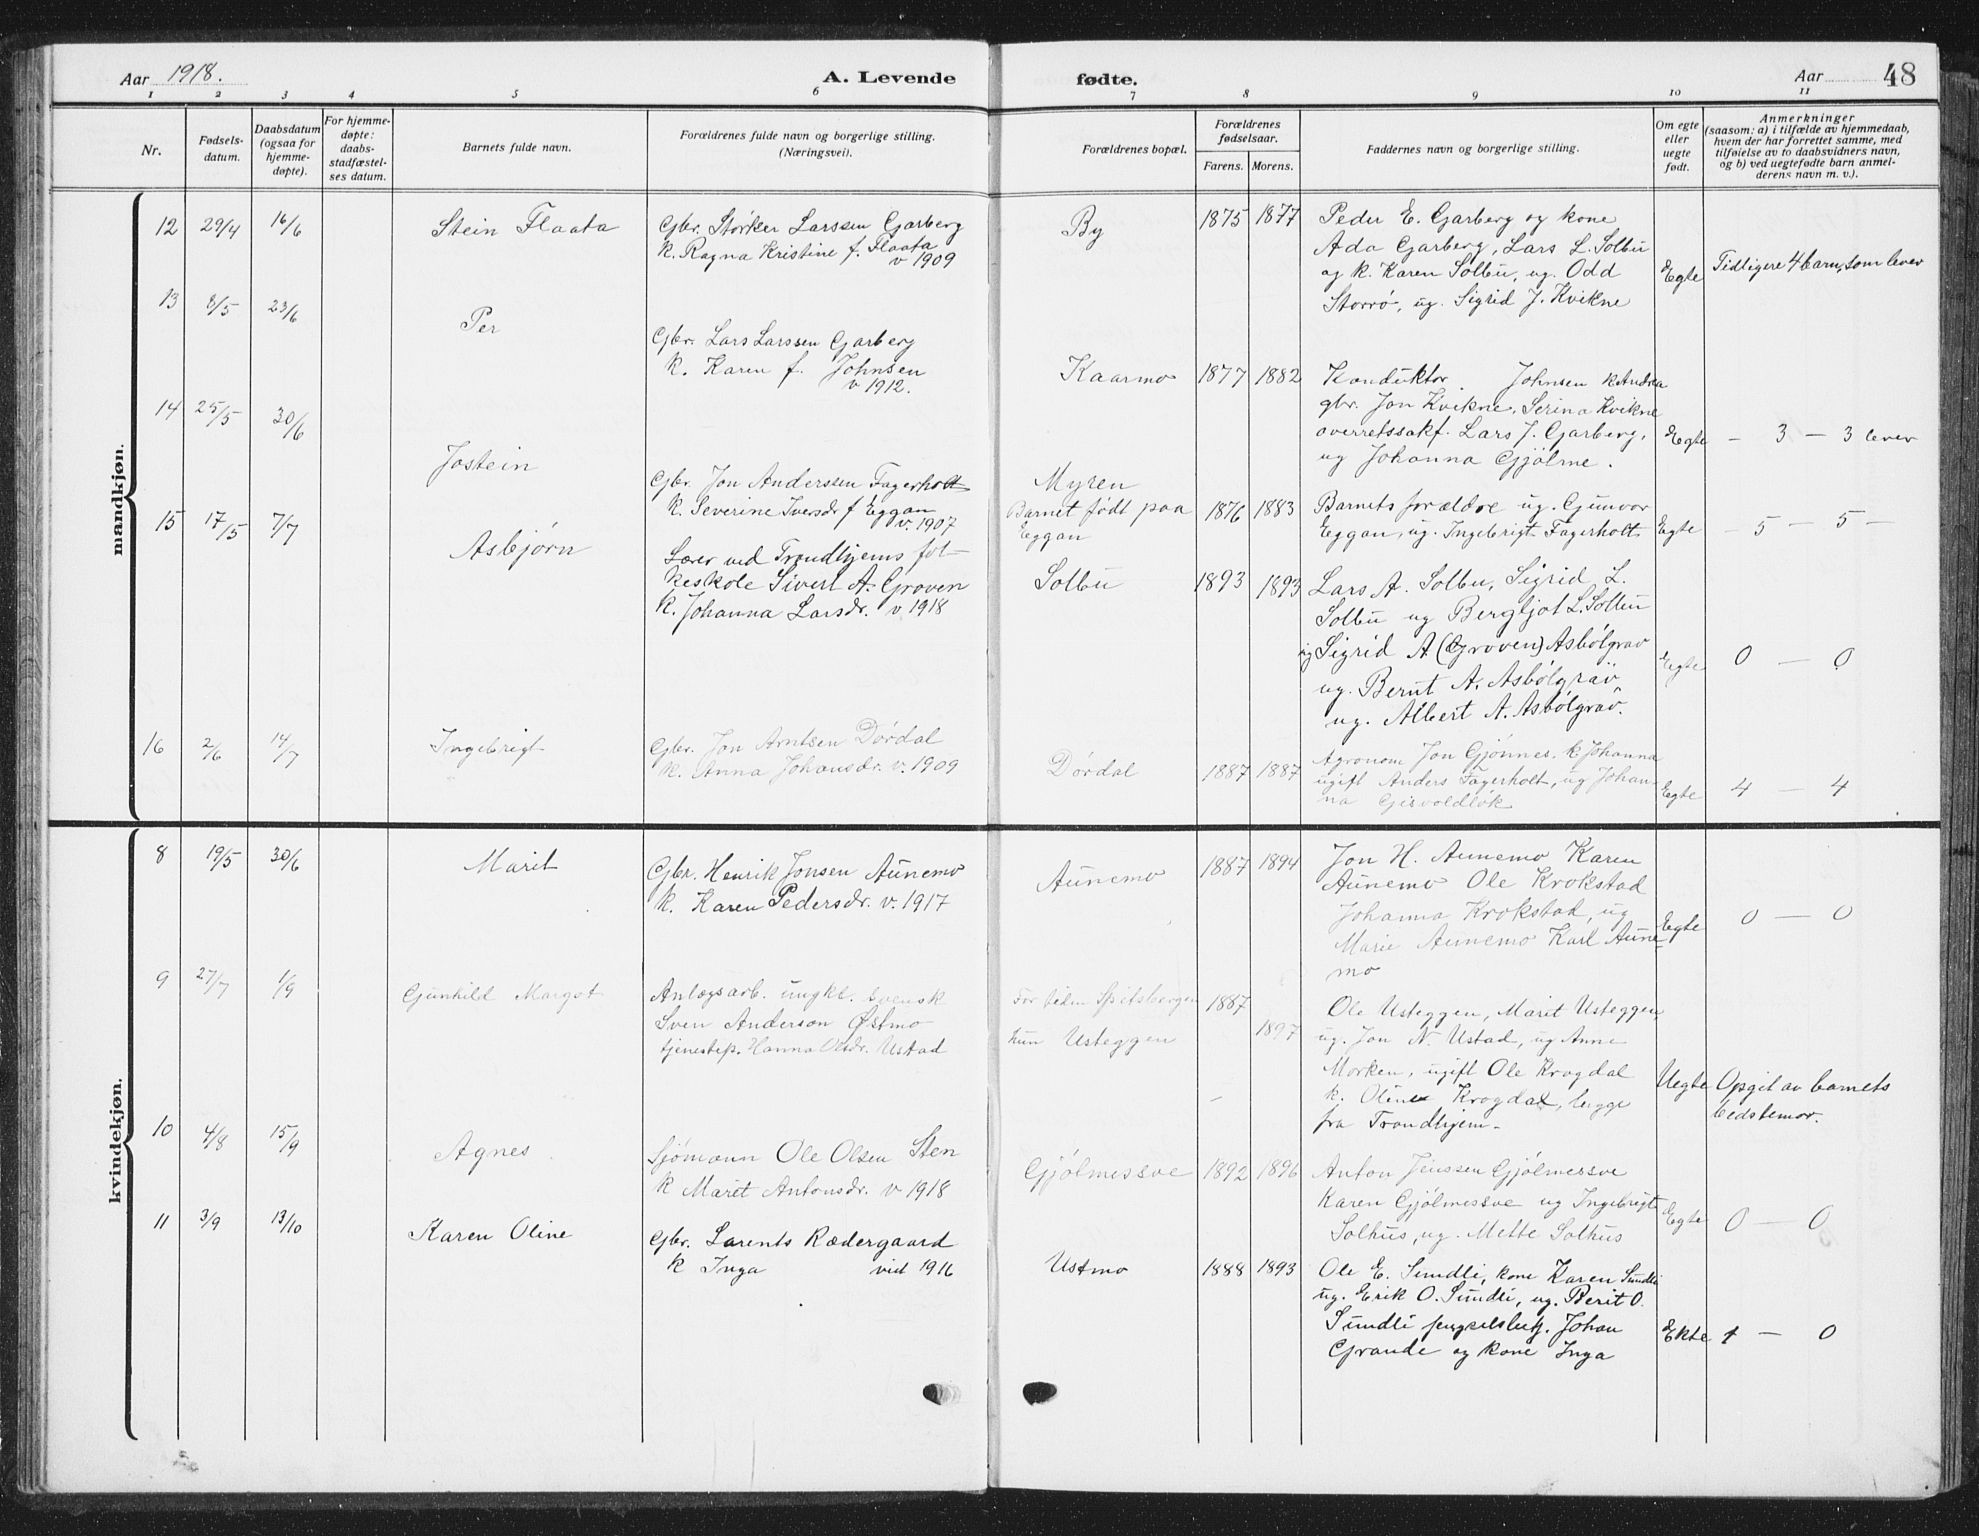 Aar 1918.
A. Levende
fødte.
Aar
48
1 2 3 4 5 6 7 8 9 10 11
Nr.
Fødsels-
datum.
Daabsdatum
(ogsaa for
hjemme-
døpte).
For hjemme-
døpte:
daabs-
stadfæstel-
ses datum.
Barnets fulde navn.
Forældrenes fulde navn og borgerlige stilling.
(Næringsvei).
Forældrenes bopæl.
Forældrenes
fødselsaar.
Farens. Morens.
Faddernes navn og borgerlige stilling.
Om egte
eller
uegte
født.
Anmerkninger
(saasom: a) i tilfælde av hjemmedaab,
hvem der har forrettet samme, med
tilføielse av to daabsvidners navn,
og b) ved uegtefødte barn anmel-
derens navn m. v.).
mandkjøn.
12 29/4 16/6 Stein Flaata
Gbr. Størker Larssen Garberg
k. Ragna Kristine f. Flaata
v 1909
By 1875 1877
Peder E. Garberg og kone
Ada Garberg, Lars L. Solbu
og k. Karen Solbu, ug. Odd
Storrø, ug. Sigrid J. Kvikne
Egte Tidligere 4 barn, som lever
13 8/5 23/6 Per
Gbr. Lars Larssen Garberg
k. Karen f. Johnsen
v 1912.
Kaarmo 1877 1882
Konduktør Johnsen k Andrea
gbr. Jon Kvikne, Serina Kvikne
overretssakf. Lars J. Garberg,
ug Johanna Gjølme.
Egte - 3 - 3 lever
14 25/5 30/6 Jostein
Gbr. Jon Anderssen Fagerholt
k. Severine Iversdr f Eggan
v. 1907
Myren
Barnet født paa
Eggan
1876 1883
Barnets forældre ug. Gunvor
Eggan, ug. Ingebrigt Fagerholt
Egte - 5 - 5 -
15 17/5 7/7 Asbjørn
Lærer ved Trondhjems fol-
keskole Sivert A. Groven
k. Johanna Larsdr. v. 1918
Solbu 1893 1893
Lars A. Solbu, Sigrid L.
Solbu ug Bergljot L. Solbu
ug Sigrid A (Groven) Asbølgrav
ug. Bernt A. Asbølgrav
ug. Albert A. Asbølgrav.
Egte 0 - 0
16 2/6 14/7 Ingebrigt
Gbr. Jon Arntsen Dørdal
k. Anna Johansdr. v. 1909
Dørdal 1887 1887
Agronom Jon Gjønnes, k. Johanna
ugift Anders Fagerholt, ug Johan-
na Gisvoldløk
Egte 4 - 4
kvindekjøn.
8 19/5 30/6 Marit
Gbr. Henrik Jonsen Aunemo
k. Karen Pedersdr. v. 1917
Aunemo 1887 1894
Jon H. Aunemo Karen
Aunemo Ole Krokstad
Johanna Krokstad, ug
Marie Aunemo Karl Aune-
mo
Egte 0 - 0
9 27/7 1/9 Gunhild Margot
Anlægsarb. ungkl. svensk
Sven Anderson Østmo
tjenestep. Hanna Olsdr. Ustad
For tiden Spitsbergen
hun Usteggen
1887
1897
Ole Usteggen, Marit Usteggen,
ug. Jon N. Ustad, ug Anne
Morken, ugift Ole Krogdal
k. Oline Krogdal, begge
fra Trondhjem-
Uegte Opgit av barnets
bedstemor.
10 4/8 15/9 Agnes
Sjømann Ole Olsen Sten
k Marit Antonsdr. v 1918
Gjølmessve 1892 1896
Anton Jenssen Gjølmessve
Karen Gjølmessve ug Ingebrigt
Solhus, ug. Mette Solhus
Egte 0 - 0
11 3/9 13/10 Karen Oline
Gbr. Larents Rædergaard
k Inga vid 1916
Ustmo 1888 1893
Ole E. Sundli, kone Karen Sundli
ug. Erik O. Sundli, ug. Berit O.
Sundli fengselsbetj. Johan
Grande og kone Inga
Ekte 1 - 0